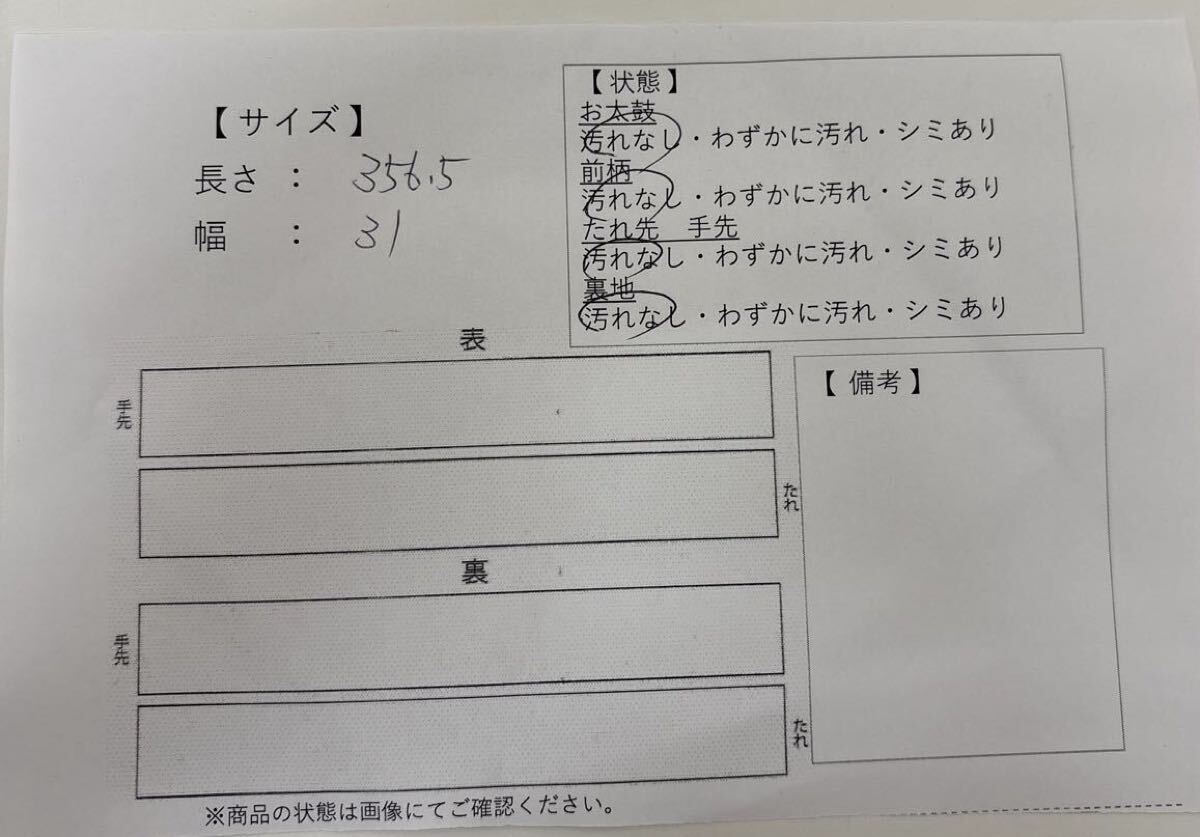 【サイズ】
長さ ： 356.5
幅 ： 31
【状態】
お太鼓
汚れなし・わずかに汚れ・シミあり
前柄
汚れなし・わずかに汚れ・シミあり
たれ先 手先
汚れなし・わずかに汚れ・シミあり
裏地
汚れなし・わずかに汚れ・シミあり
表
手先
たれ
裏
手先
たれ
【備考】
※商品の状態は画像にてご確認ください。